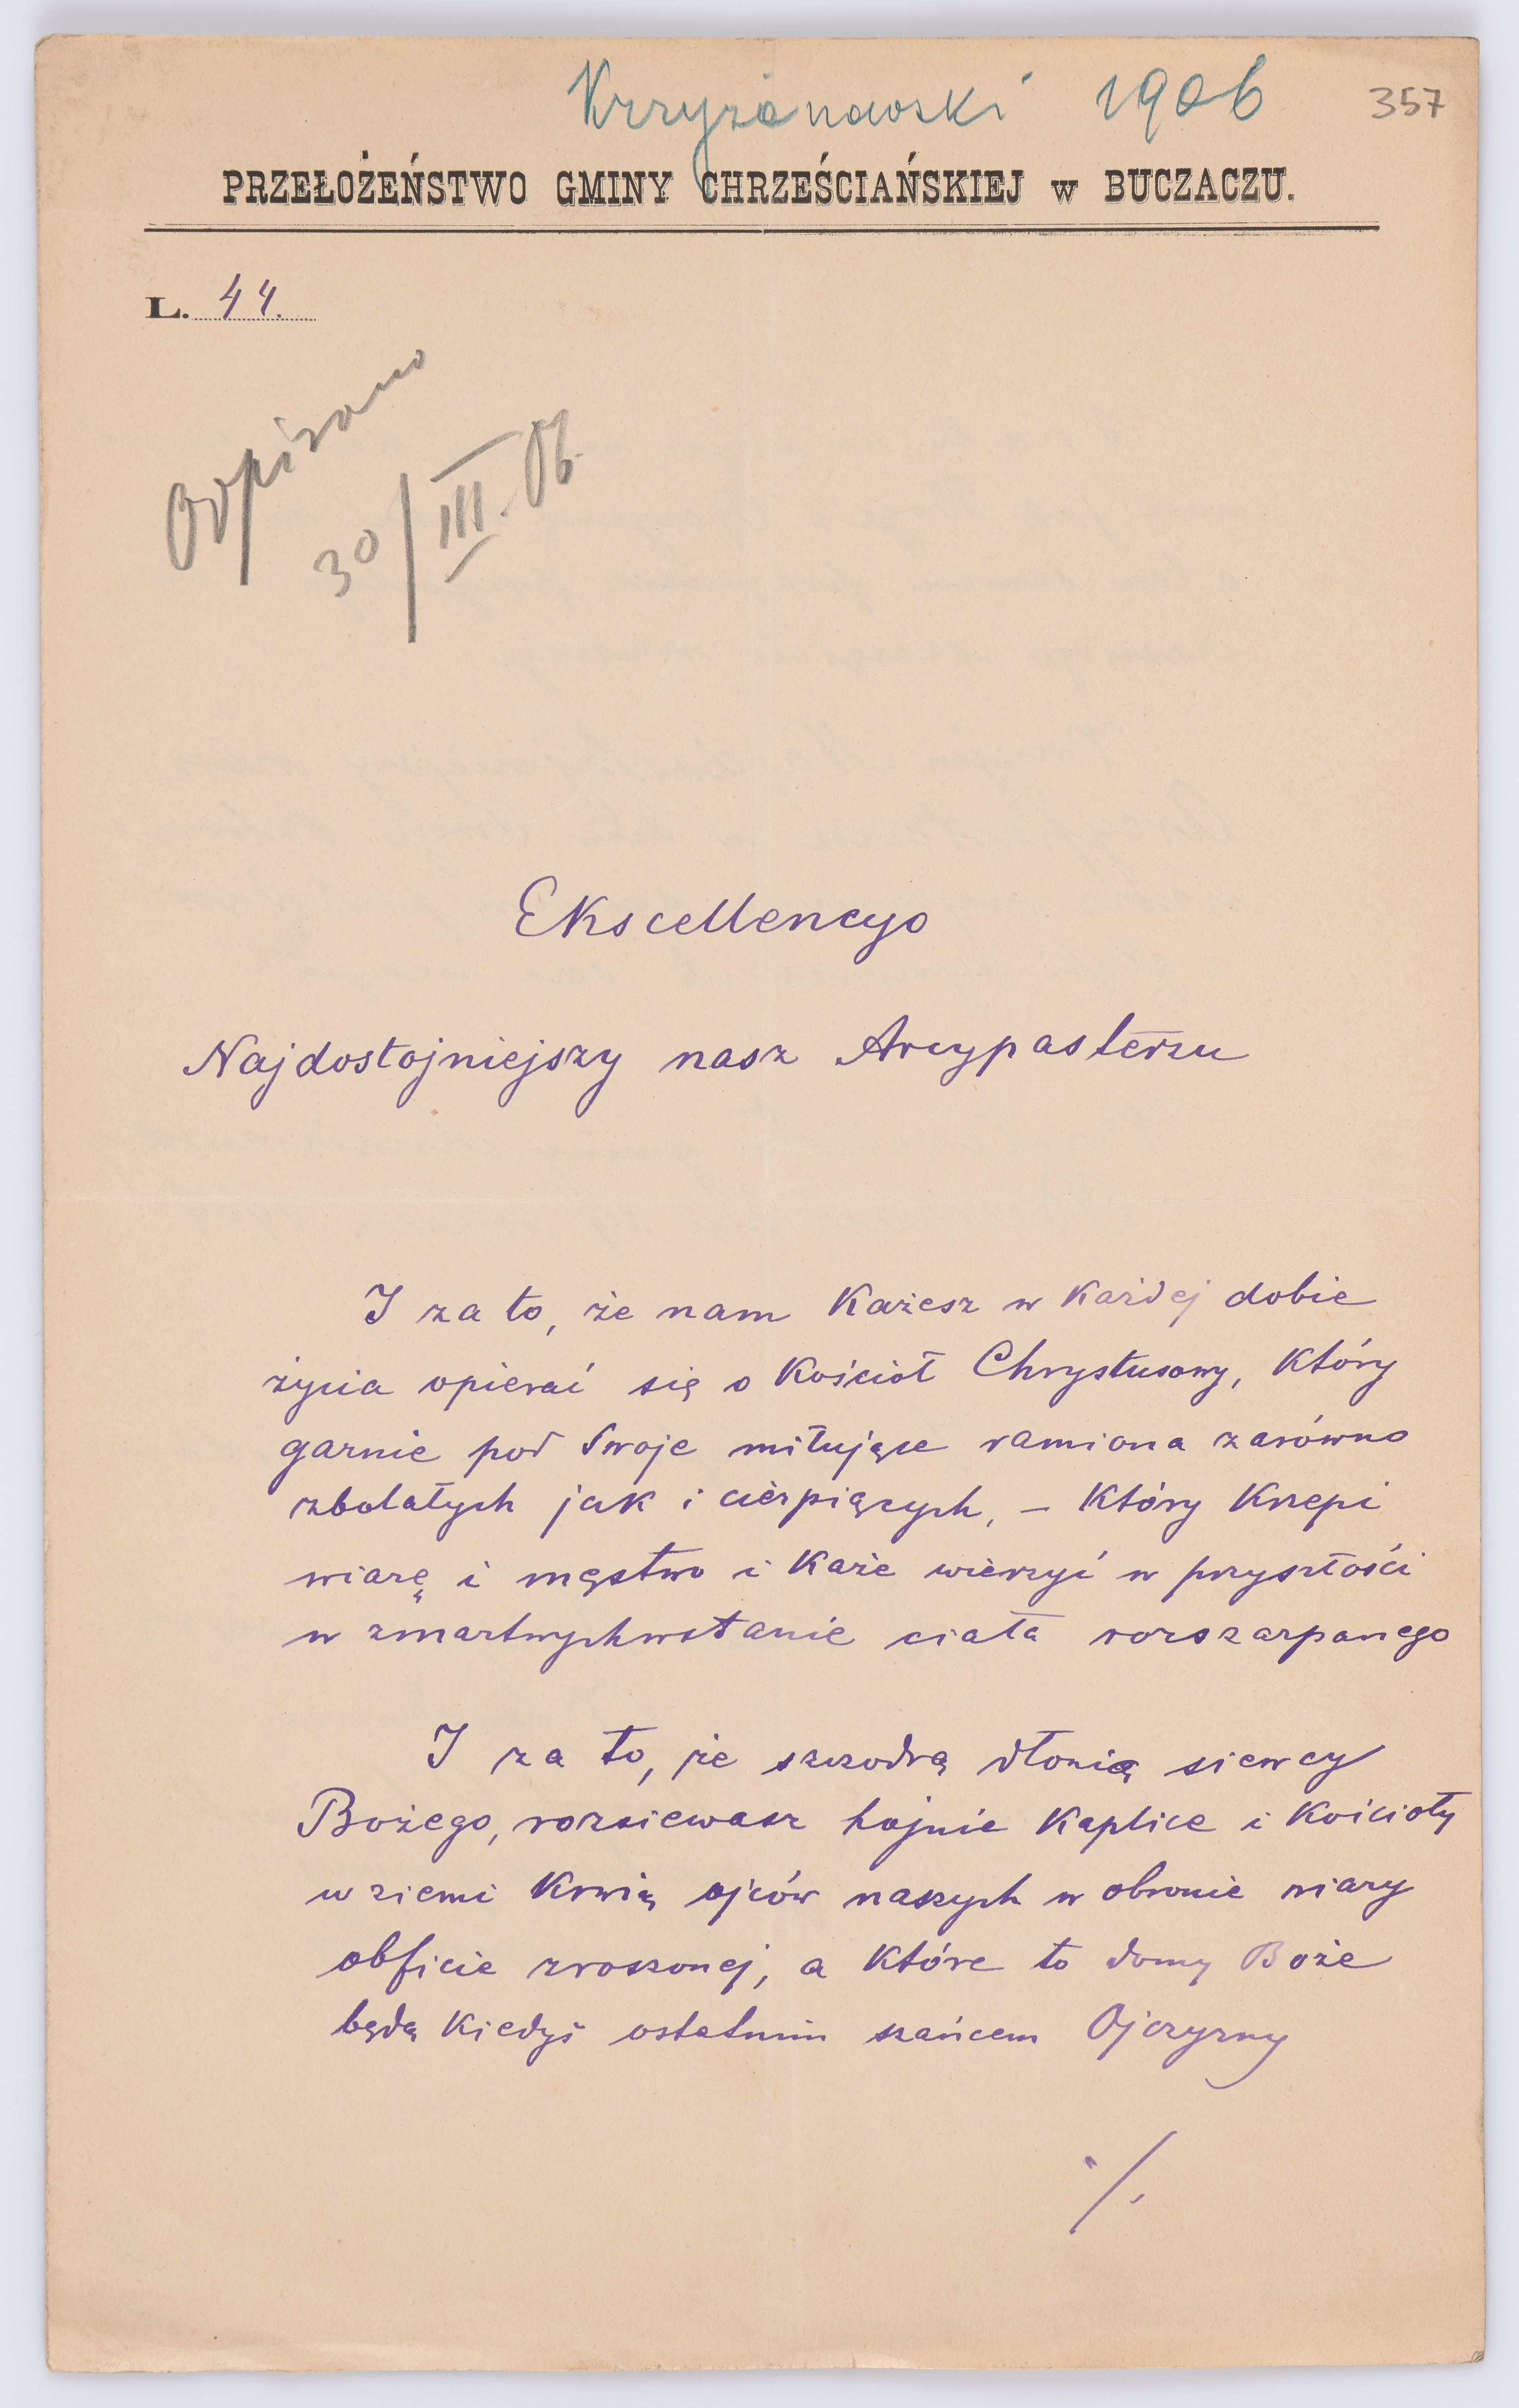 Krzyżanowski 1906 357
PRZEŁOŻEŃSTWO GMINY CHRZEŚCIAŃSKIEJ w BUCZACZU.
L. 44.
Odpisano
30/III.06.
Ekscellencyo
Najdostojniejszy nasz Arcypasterzu
I za to, że nam każesz w każdej dobie
życia opierać się o Kościół Chrystusowy, który
garnie pod Swoje miłujące ramiona zarówno
zbolałych jak i cierpiących, – który krzepi
wiarę i męstwo i każe wierzyć w przyszłości
w zmartwychwstanie ciała rozszarpanego
I za to, że szczodrą dłonią siewcy
Bożego, rozsiewasz hojnie Kaplice i Kościoły
w ziemi krwią ojców naszych w obronie wiary
obficie zroszonej, a które to domy Boże
będą kiedyś ostatnim szańcem Ojczyzny
./.